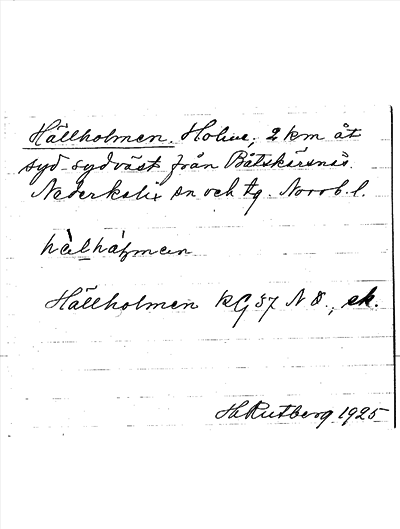 Hällholmen. Holme, 2 km åt
syd-sydväst från Båtskärsnäs.
Nederkalix sn och tg. Norrb. l.
hälhåɽmɐn
Hällholmen KG 87 N 8., ek.
H Rutberg 1925